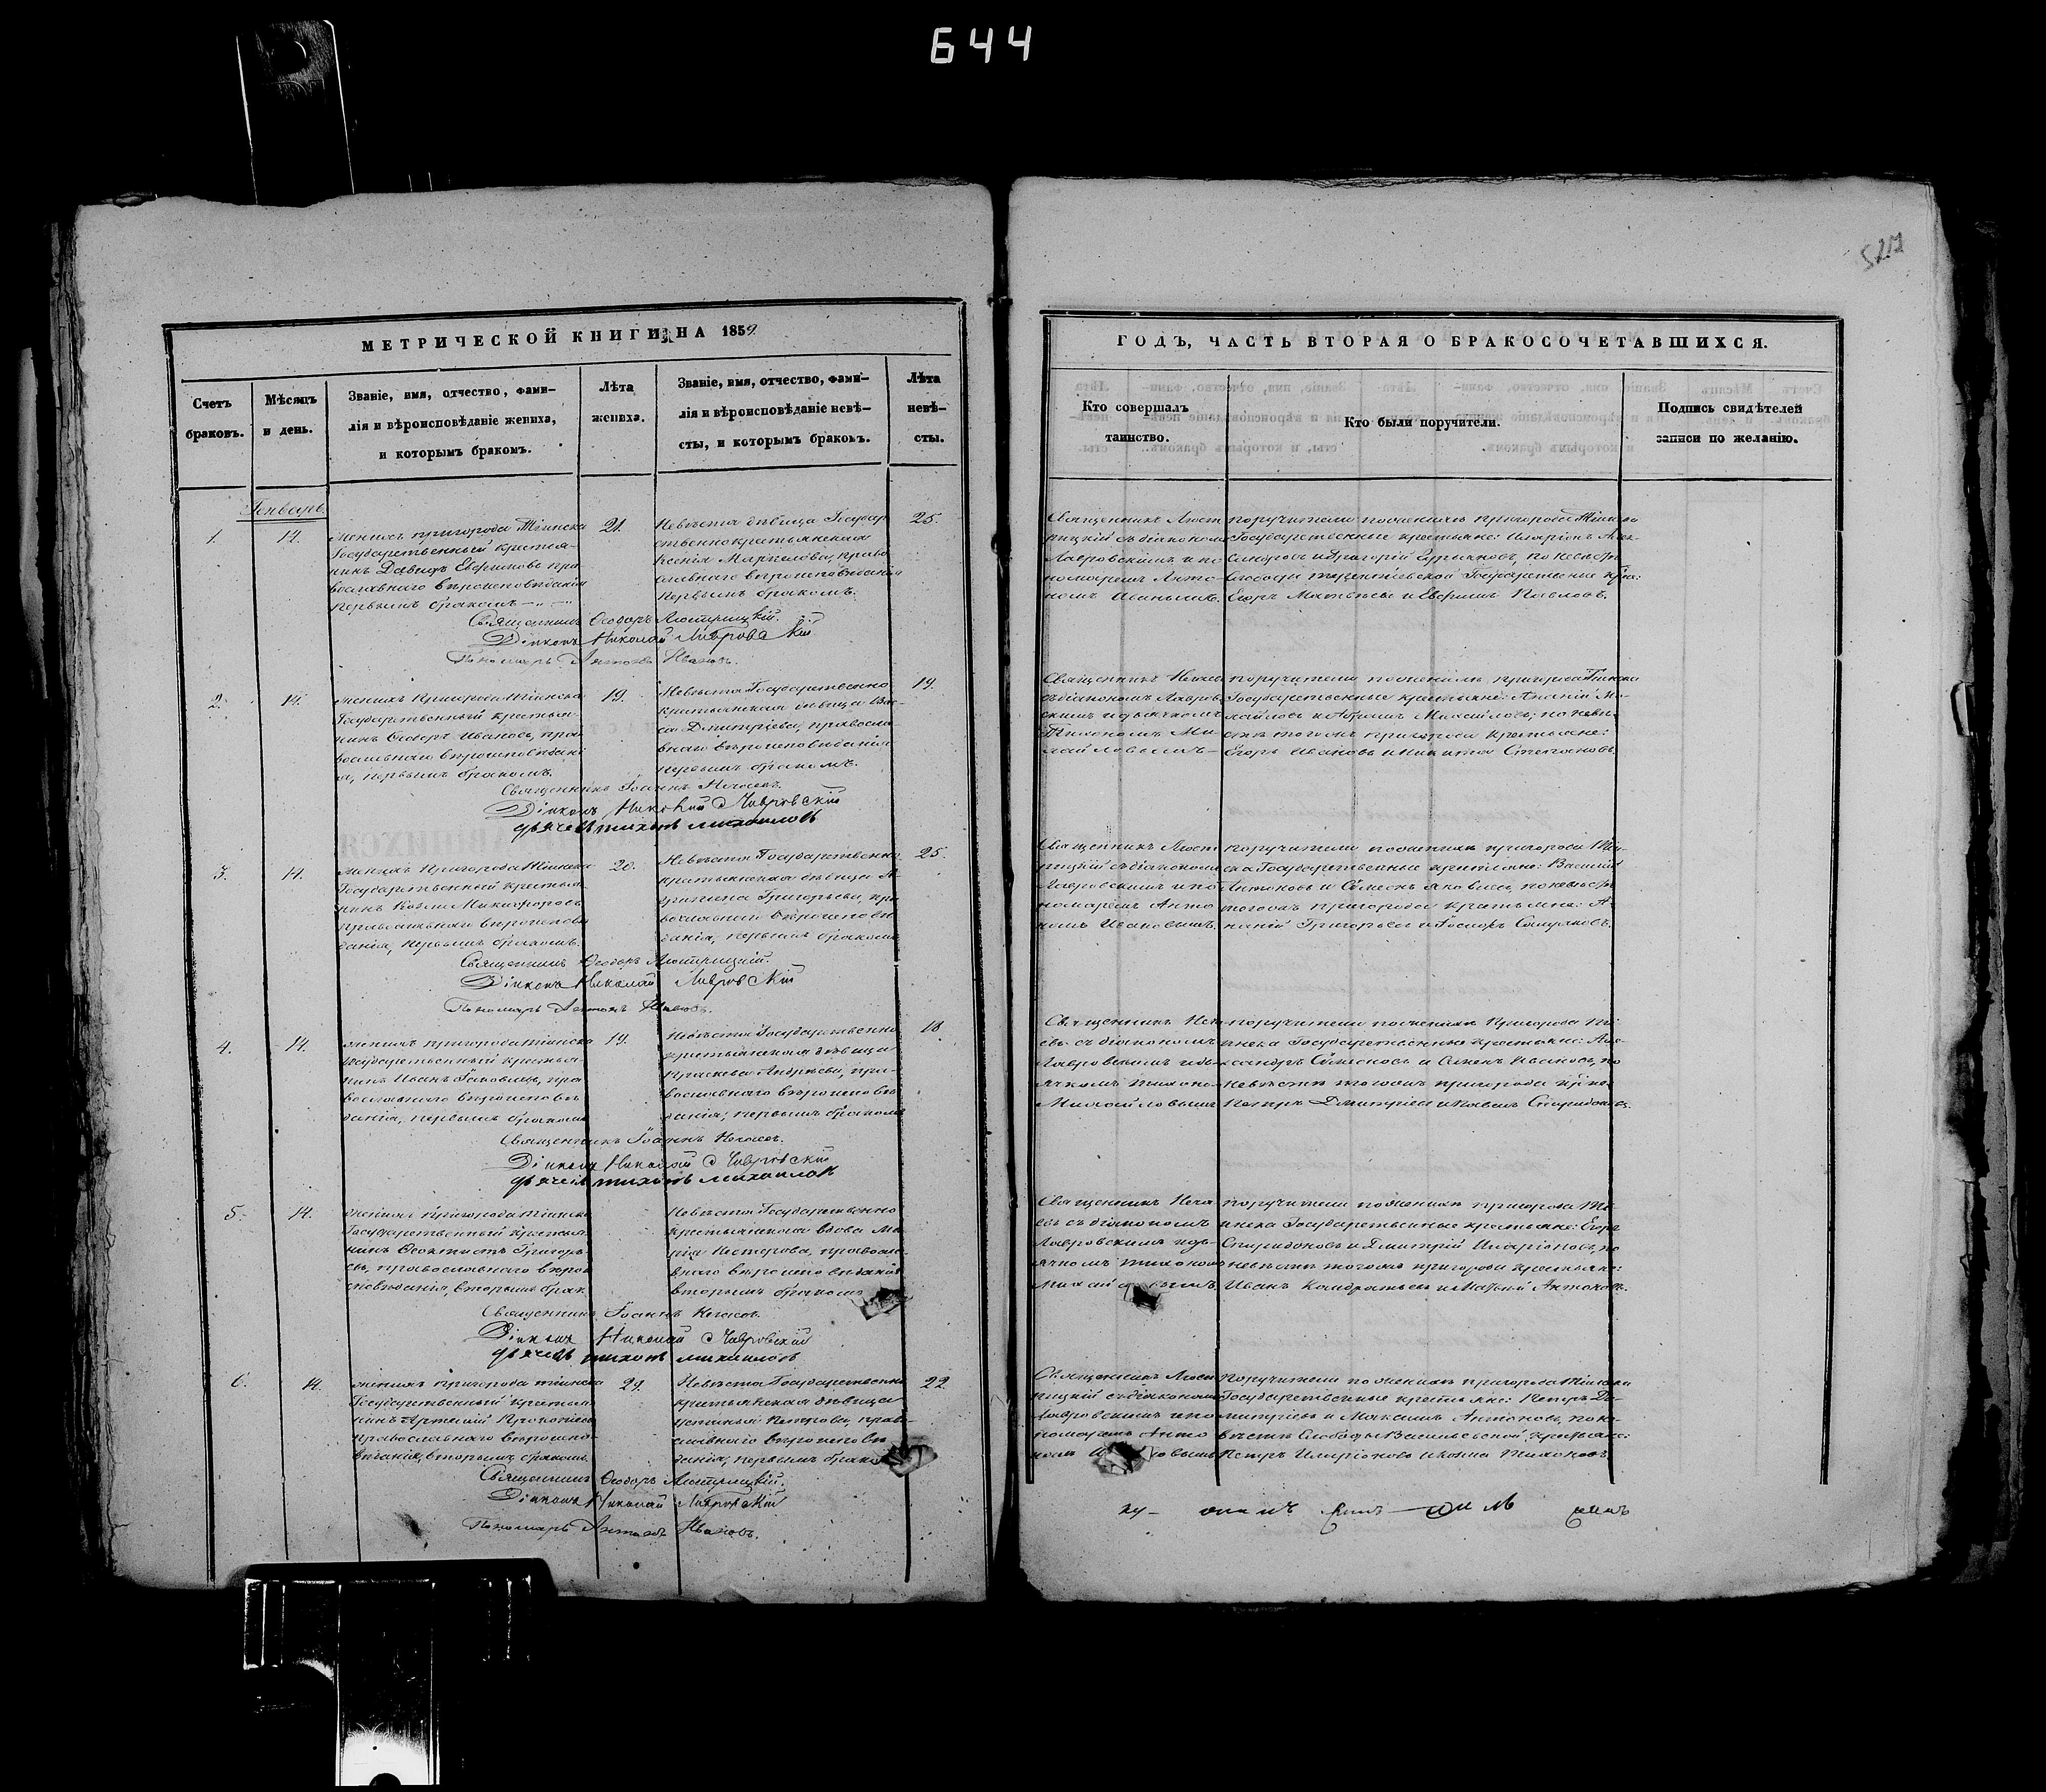 644
МЕТРИЧЕСКОЙ КНИГИ НА 1859
Счетъ браковъ.
Мѣсяцъ и день.
Званіе, имя, отчество, фами-
лія и вѣроисповѣданіе жениха,
и которымъ бракомъ.
Лѣта жениха.
Званіе, имя, отчество, фами-
лія и вѣроисповѣданіе невѣ-
сты, и которымъ бракомъ.
Лѣта невѣ-
сты.
Генварь.
1.
14.
Женихъ пригорода Тіинска
Государственный крестья-
нинъ Давидъ Ефимовъ пра
вославнаго вѣроисповѣданія
первымъ бракомъ
21.
Невѣста дѣвица Государ
ственно крестьянская
Ксенія Маркелова, право
славнаго вѣроисповѣданія
первымъ бракомъ.
25.
Священникъ Ѳеодоръ
Діаконъ Николай Лавровскій
Пономарь Антонъ Ивановъ.
2.
14.
Женихъ пригорода Тіинска
Государственный крестья-
нинъ Ѳедоръ Ивановъ, пра
вославнаго вѣроисповѣдані
я, первымъ бракомъ.
19.
Невѣста Государственно
крестьянская дѣвица Ва-
са Дмитріева, правосла
внаго вѣроисповѣданія
первымъ бракомъ.
19.
Священникъ Іоаннъ Нечаевъ.
Діаконъ Николай Лавровскій
дьячекъ тихонъ михаиловъ
3.
14.
Женихъ Пригорода Тіинска
Государственный крестья-
нинъ Козма Никифоровъ
православнаго вѣроисповѣ
данія, первымъ бракомъ.
20.
Невѣста Государственно
крестьянская дѣвица А
грипина Григорьева, пра
вославнаго вѣроисповѣ
данія, первымъ бракомъ
25.
Священникъ Ѳеодоръ
Діаконъ Николай Лавровскій
Пономарь Антонъ Ивановъ.
4.
14.
Женихъ пригорода Тіинска
Государственный крестья
нинъ Иванъ Яковлевъ, пра
вославнаго вѣроисповѣ
данія, первымъ бракомъ
19.
Невѣста Государственно
крестьянская дѣвица
Прасковья Андрѣева, пра-
вославнаго вѣроисповѣ
данія, первымъ бракомъ
18.
Священникъ Іоаннъ Нечаевъ.
Діаконъ Николай Лавровскій
дьячекъ тихонъ михаиловъ
5.
14.
Женихъ пригорода Тіинска
Государственный крестья
нинъ Ѳеоктистъ Григорь
евъ, православнаго вѣро
исповѣданія, вторымъ брак.
Невѣста Государственно
крестьянская вдова Ма
рія Нестерова, правосла
внаго вѣроисповѣданія
вторымъ бракомъ
Священникъ Іоаннъ Нечаевъ.
Діаконъ Николай Лавровскій
дьячекъ тихонъ михаиловъ
6.
14.
Женихъ пригорода Тіинска
Государственный крестья
нинъ Артемій Прокопіевъ
православнаго вѣроиспо-
вѣданія, вторымъ бракомъ.
29.
Невѣста Государственно
крестьянская дѣвица
Устинья Петрова, право
славнаго вѣроисповѣ
данія, первымъ брако
22.
Священникъ Ѳеодоръ
Діаконъ Николай Лавровскій
Пономарь Антонъ Ивановъ.
ГОДЪ, ЧАСТЬ ВТОРАЯ О БРАКОСОЧЕТАВШИХСЯ.
Кто совершалъ
таинство.
Кто были поручители.
Подпись свидѣтелей
записи по желанію.
Священникъ
рицкій съ діакономъ
Лавровскимъ и по
номаремъ Анто
номъ Ивановымъ.
поручители по женихѣ пригорода Тіинска
Государственные крестьяне: Иларіонъ Алек-
по невѣстѣ
слободы Государственные кре:
Егоръ Матвѣевъ и Ефимъ Павловъ.
Священникъ Нечаевъ
съ діакономъ Лавров
скимъ и дьячкомъ
Тихономъ Ми
хайловымъ
поручители по женихѣ пригорода Тіинска
Государственные крестьяне: Ананій Ми-
хайловъ и Абрамъ Михайловъ; по невѣ-
стѣ тогожъ пригорода крестьяне:
Егоръ Ивановъ и Никита Степановъ.
Священникъ
рицкій съ діакономъ
Лавровскимъ и по
номаремъ Анто
номъ Ивановымъ.
поручители по женихѣ пригорода Тіин-
ска Государственные крестьяне: Василій
Антоновъ и Семенъ Яковлевъ, по невѣстѣ
тогожъ пригорода крестьяне: А-
наній Григорьевъ и
Священникъ Неча
евъ съ діакономъ
Лавровскимъ и дь
ячкомъ Тихоно
Михайловымъ
поручители по женихѣ Пригорода Ті
инска Государственные крестьяне: Але-
ксандръ Семеновъ и Семенъ Ивановъ, по
невѣстѣ тогожъ пригорода кре.
Петръ Дмитріевъ и Павелъ Спиридоновъ.
Священникъ Неча
евъ съ діакономъ
Лавровскимъ и дь-
ячкомъ Тихономъ
поручители по женихѣ пригорода Ті
инска Государственные крестьяне: Егоръ
Спиридоновъ и Дмитрій Иларіоновъ, по
невѣстѣ тогожъ пригорода крестьяне:
Иванъ Кондратьевъ и Матвій Антоновъ.
Священникъ
рицкій съ діакономъ
Лавровскимъ и по
номаремъ Анто
номъ И овымъ
Поручители по женихѣ пригорода Тіинска
Государственные крестьяне: Петръ Ди-
митріевъ и Максимъ Антоновъ, по не-
вѣстѣ Слободы Васильевской, крестьяне:
Петръ Иларіоновъ и Тихоновъ.